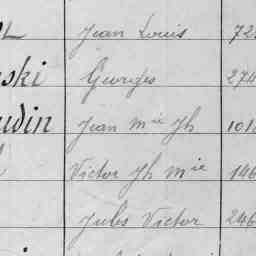 Jean Louis 72
ski Georges 274
udin Jean Mie Jh 101
Victor Jh Mie 146
Jules Victor 246